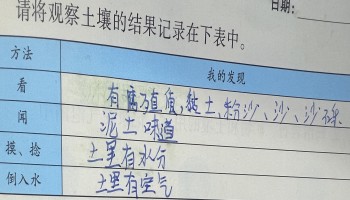 日期:
请将观察土壤的结果记录在下表中。
方法 我的发现
看 有腐殖质,黏土、粉沙、沙、沙砾、
闻 泥土味道
摸、捻 土里有水分
倒入水 土里有空气